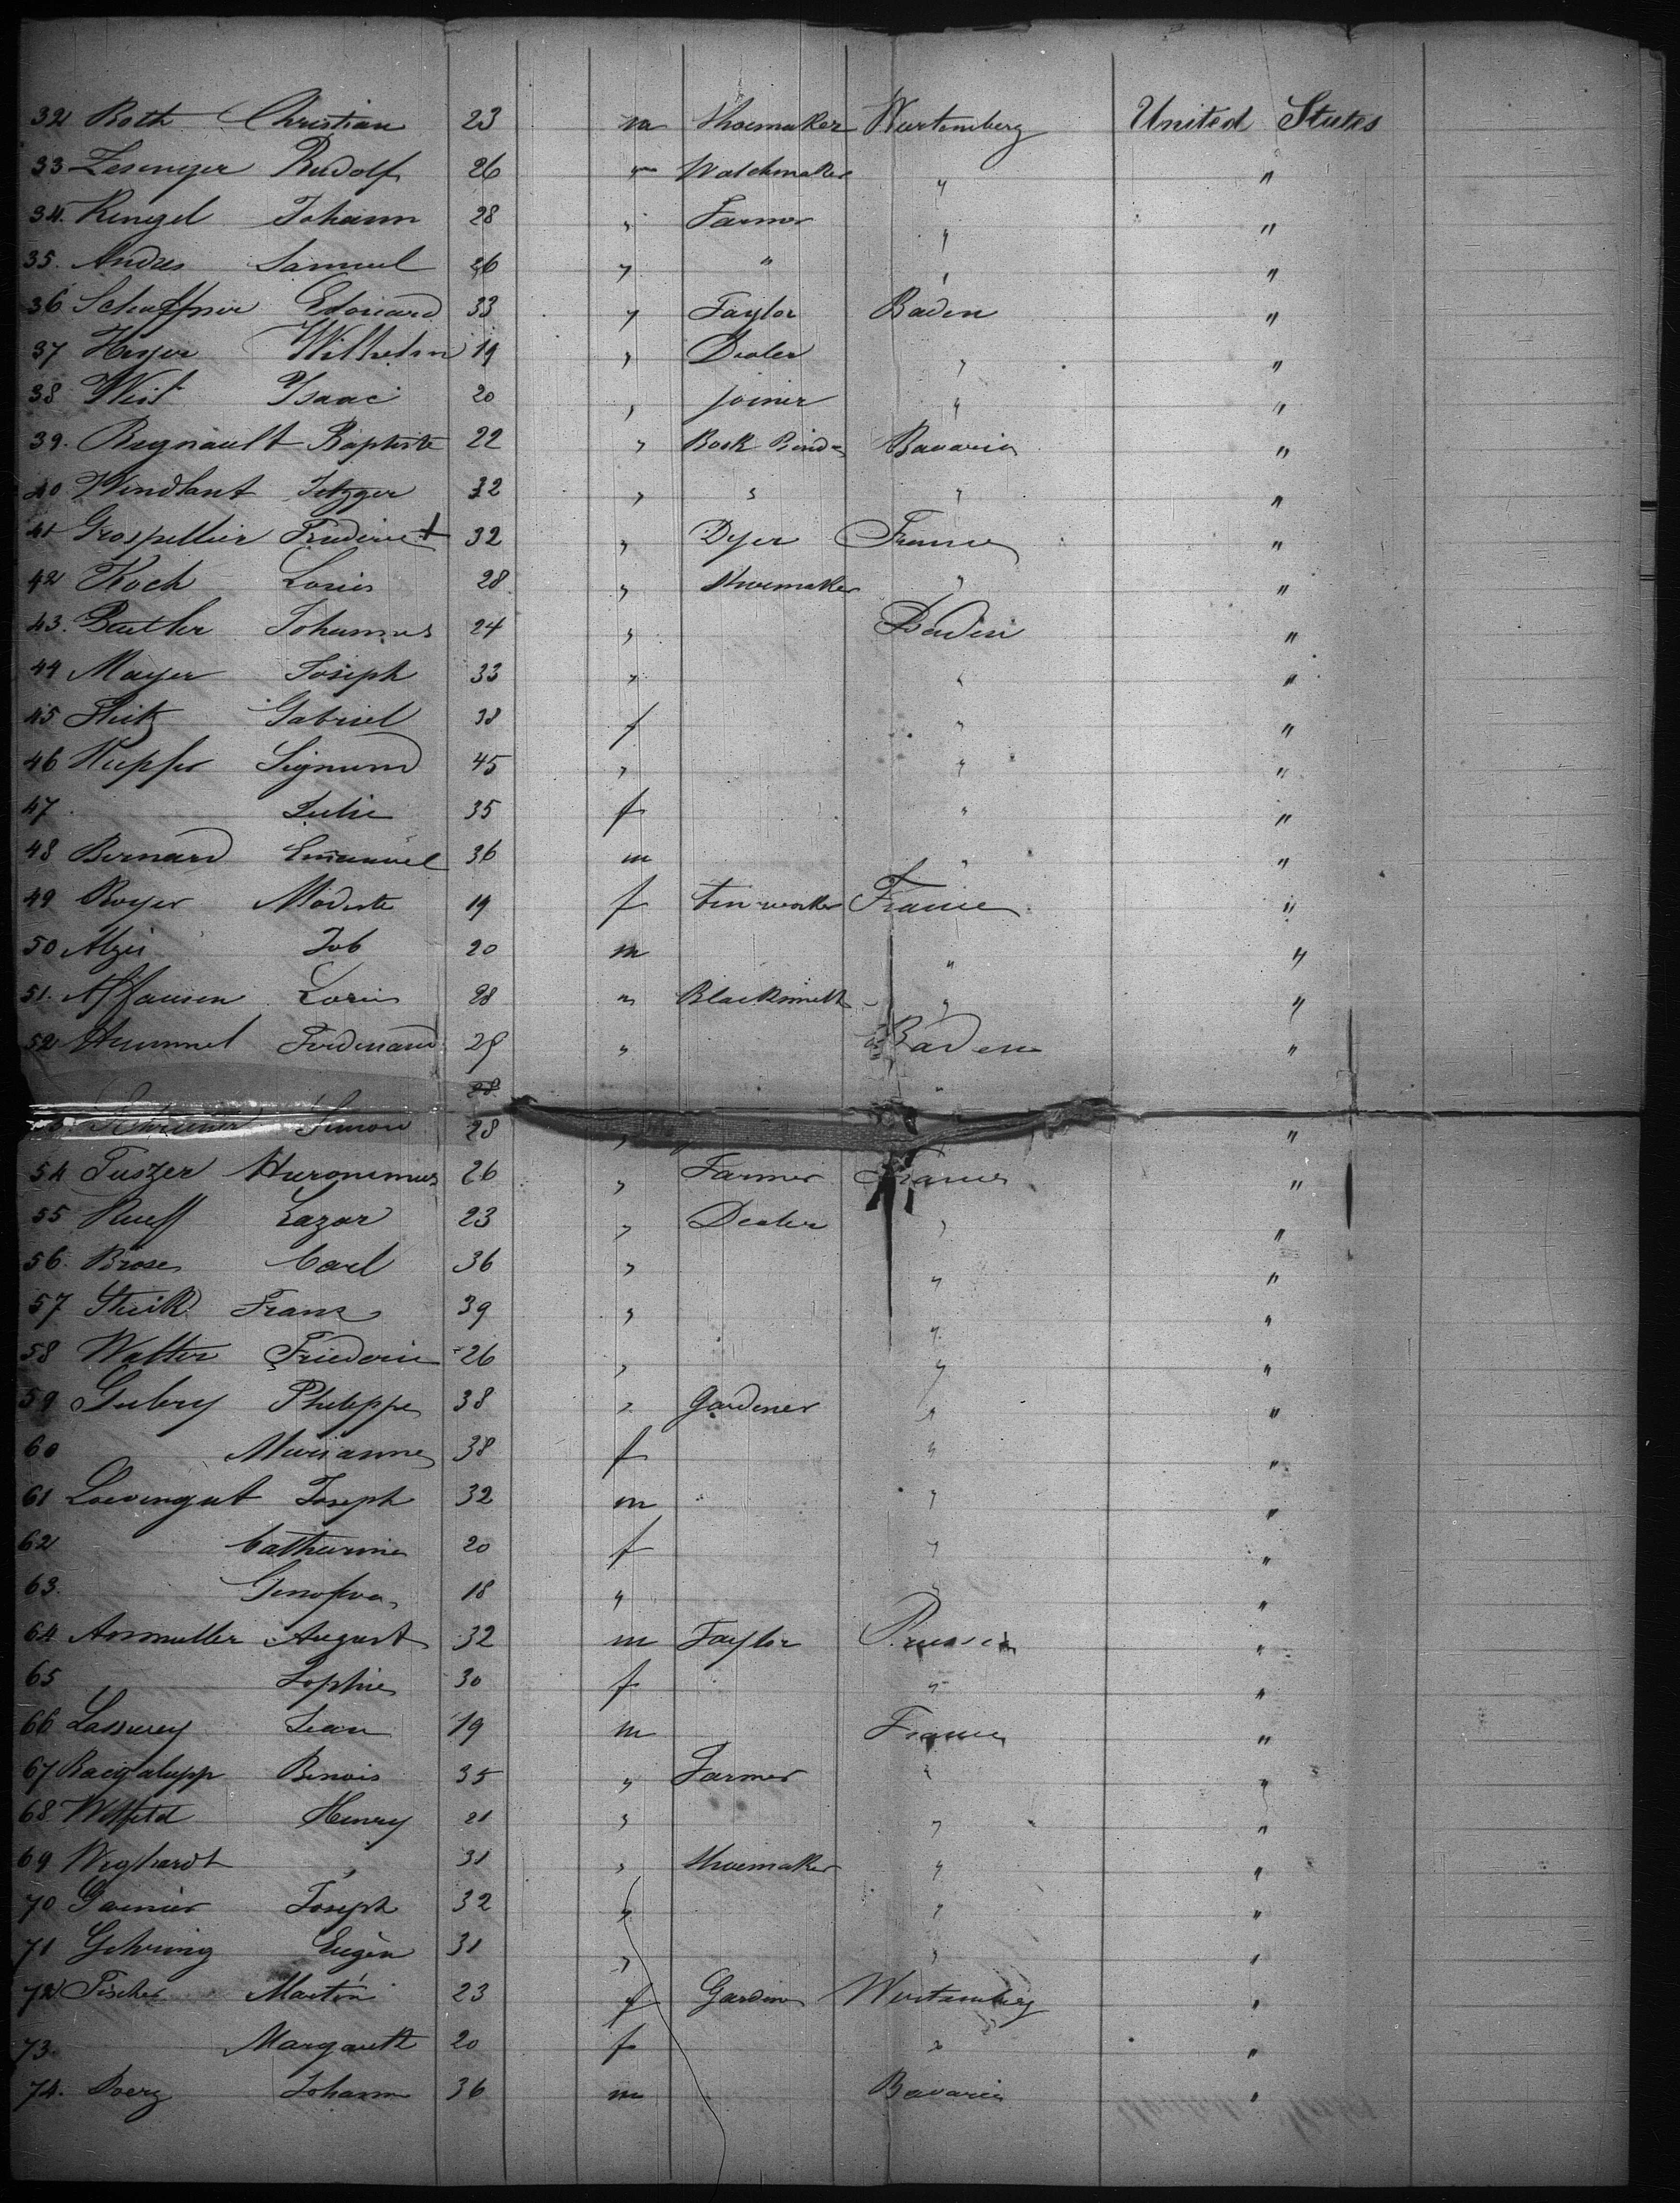 32 Roth Christian 23 m Shoemaker Wurtemberg United States
33 Zesenyer Rudolf 26 " Watchmaker " "
34. Kengel Johann 28 " Farmer " "
35. Andres Samuel 26 " " " "
36 Schaffner Edouard 33 " Taylor Baden "
37 Heyer Wilhelm 19 " Dealer " "
38 Weil Isaac 20 " joiner " "
39. Regnault Baptiste 22 " Book Bind= Bavaria "
40 Windhant 32 " " " "
41 Grospellier 32 " Dyer France "
42 Koch Louis 28 " Shoemaker " "
43. Butler Johannes 24 " Baden "
44 Mayer Joseph 33 " " "
45 Gabriel 38 f " "
46 Kupfer Sigmund 45 " " "
47 Julie 35 f " "
48 Bernard Emanuel 36 m " "
49 Royer Modeste 19 f tin-worker France "
50 Job 20 m " "
51. Louis 28 " Blacksmith " "
52 Hummel Ferdinand 29 " Baden "
28
Simon 28 " "
54 Tuszer Hieronimus 26 " Farmer France "
55 Rueff Lazar 23 " Dealer " "
56. Brose Carl 36 " " "
57 Franz 39 " " "
58 Walter Friederic 26 " " "
59 Gubry Philippe 38 " Gardener " "
60 Marianne 38 f " "
61 Loevengut Joseph 32 m " "
62 Catherine 20 f " "
63. Genofeva 18 " " "
64 Ansmuller August 32 m Taylor Prussia "
65 Sophie 30 f " "
66 Lassurey Jean 19 m France "
67 Bacigalupp Benois 35 " Farmer " "
68 Henry 21 " " "
69 Weghardt " 31 " Shoemaker " "
70 Garnier Joseph 32 " " "
71 Gehring Eugèn 31 " " "
72 Fischer Martin 23 Gardener Wurtemberg "
73. Margareth 20 f " "
74. Doerz Johann 36 m Bavaria "